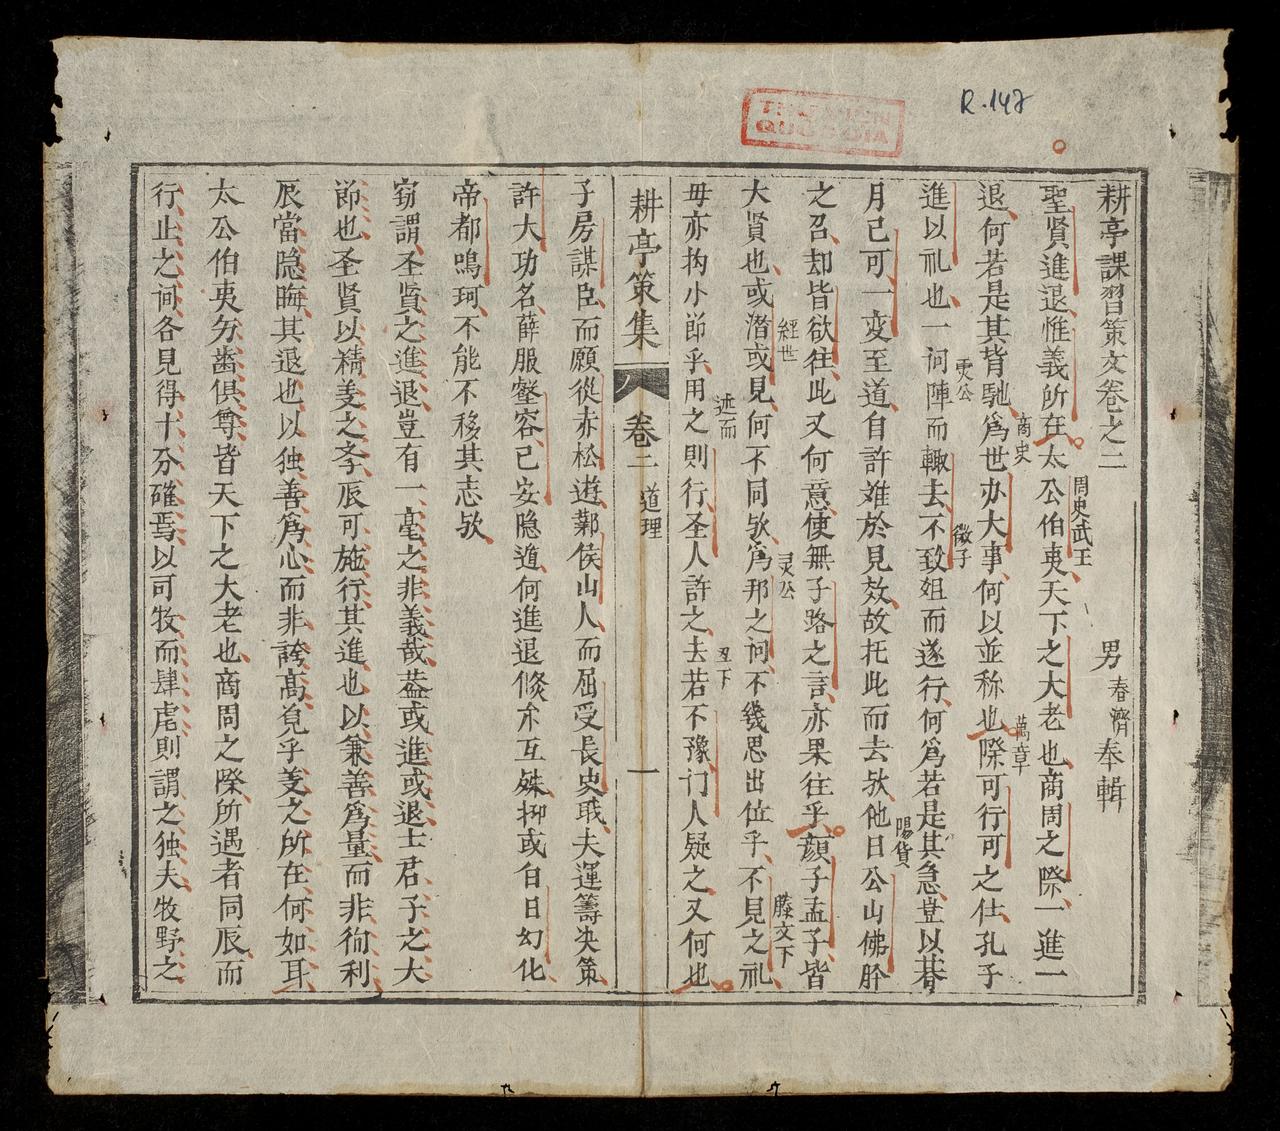 R.147
THƯ VIỆN
QUỐC GIA
耕亭課習策文卷之二
男春濟奉輯
聖賢進退惟義所在太公伯夷天下之大老也商周之際一進一
周史武王
退何若是其背馳爲世办大事何以並称也際可行可之仕孔子
商史
萬章
進以礼也一问陣而輙去不致俎而遂行何爲若是其急豈以朞
灵公
微子
月已可一变至道自許难於見效故托此而去欤他日公山佛肸
陽貨
之召却皆欲往此又何意使無子路之言亦果往乎顏子孟子皆
大賢也或潛或見何不同欤爲邦之问不幾思出位乎不見之礼
經世
灵公
滕文下
毋亦拘小節乎用之則行圣人許之去若不豫门人疑之又何也
述而
丑下
耕亭策集
卷二
道理
一
子房謀臣而願從赤松遊鄴侯山人而屈受長史戢夫運籌决策
許大功名薛服壑容已安隐道何進退倏尒互殊抑或白日幻化
帝都鳴珂不能不移其志欤
窃謂圣賢之進退豈有一毫之非義哉葢或進或退士君子之大
節也圣賢以精义之孝辰可施行其進也以兼善爲量而非徇利
辰當隐晦其退也以独善爲心而非誇高覓乎义之所在何如耳
太公伯夷匇齒俱尊皆天下之大老也商周之際所遇者同辰而
行止之问各見得十分確焉以可牧而肆虐則謂之独夫牧野之